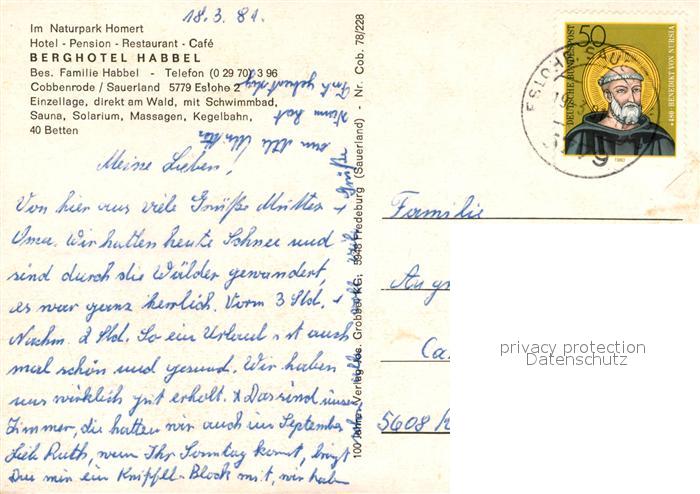 18.3.81.
Im Naturpark Homert
Hotel - Pension - Restaurant - Café
BERGHOTEL HABBEL
Bes. Familie Habbel - Telefon (0 29 70) 3 96
Cobbenrode / Sauerland 5779 Eslohe 2
Einzellage, direkt am Wald, mit Schwimmbad,
Sauna, Solarium, Massagen, Kegelbahn,
40 Betten
Meine Lieben!
Von hier aus viele Grüße Mutter +
Oma. Wir hatten heute Schnee und
sind durch die Wälder gewandert,
es war ganz herrlich. Vorm 3 Std. +
Nachm. 2 Std. So ein Urlaub ist auch
mal schön und gesund. Wir haben
uns wirklich gut erholt. x Das sind unsere
Zimmer, die hatten wir auch im September
Lieb Ruth, wenn Ihr Sonntag kommt, bringt
Du mir ein Kniffel-Block mit, wir haben
Grüße
100 Jahre Verlag Jos. Grobbel KG, 5948 Fredeburg (Sauerland) - Nr. Cob. 78/228
50
DEUTSCHE BUNDESPOST
*480 BENEDIKT VON NURSIA
1980
ESLOHE, SAU
Familie
5608
privacy protection
Datenschutz